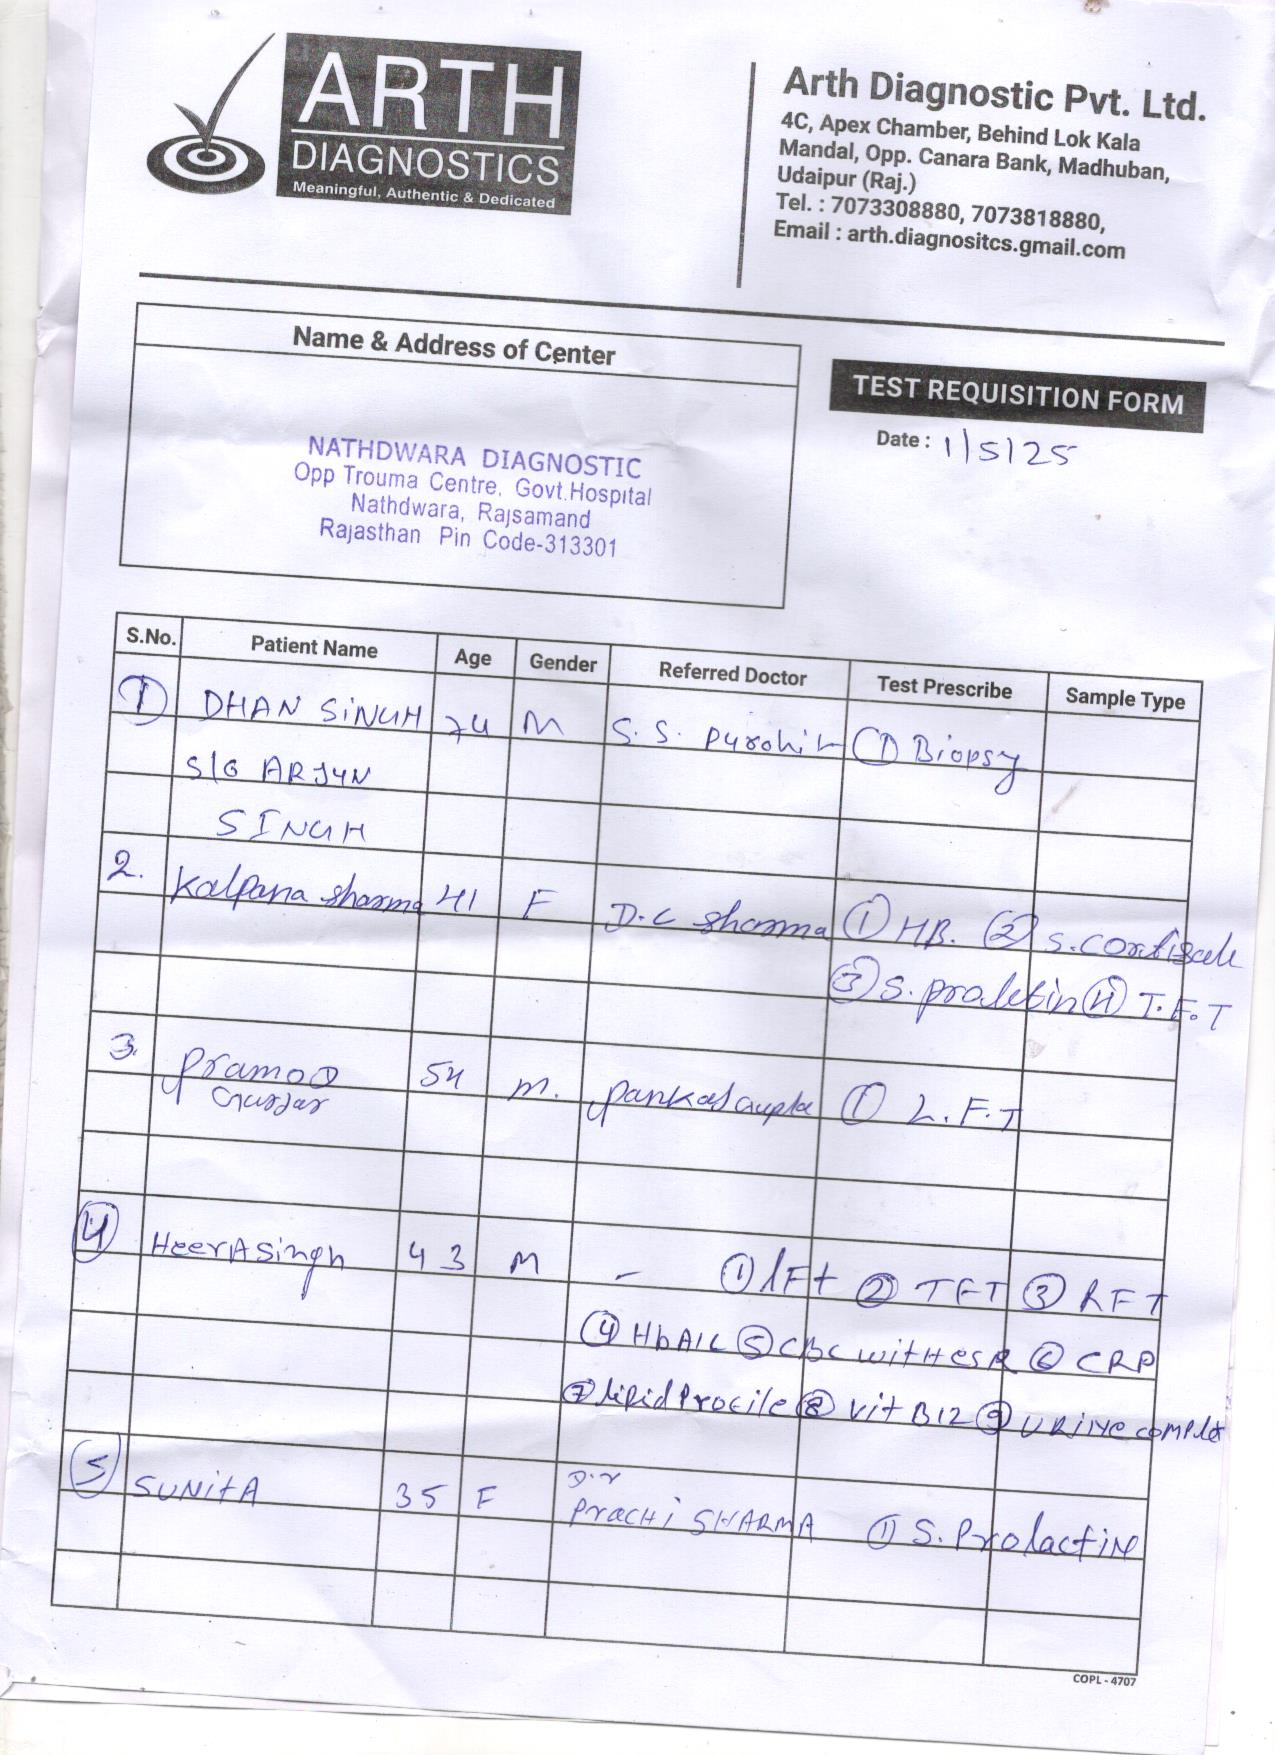 ARTH
DIAGNOSTICS
Meaningful, Authentic & Dedicated
Arth Diagnostic Pvt. Ltd.
4C, Apex Chamber, Behind Lok Kala
Mandal, Opp. Canara Bank, Madhuban,
Udaipur (Raj.)
Tel. : 7073308880, 7073818880,
Email : arth.diagnositcs.gmail.com
Name & Address of Center
NATHDWARA DIAGNOSTIC
Opp Trouma Centre, Govt.Hospital
Nathdwara, Rajsamand
Rajasthan Pin Code-313301
TEST REQUISITION FORM
Date : 1/5/25
S.No. Patient Name Age Gender Referred Doctor Test Prescribe Sample Type
① DHAN SINGH 74 M S.S. Purohit ① Biopsy
S/O ARJUN
SINGH
2. Kalpana Sharma 41 F D.C Sharma ① HB. ② S.
③ S. ④ T.F.T
3. Pramod 54 M. Pankaj Gupta ① L.F.T
Gurjar
④ HeerA Singh 43 M - ① LFt ② TFT ③ RFT
④ HbA1C ⑤ CBC witH esR ⑥ CRP
⑦ lipid Profile ⑧ Vit B12 ⑨ URiNe complet
⑤ SUNitA 35 F D.r
PracHi SHARMA ① S. Prolactin
COPL - 4707